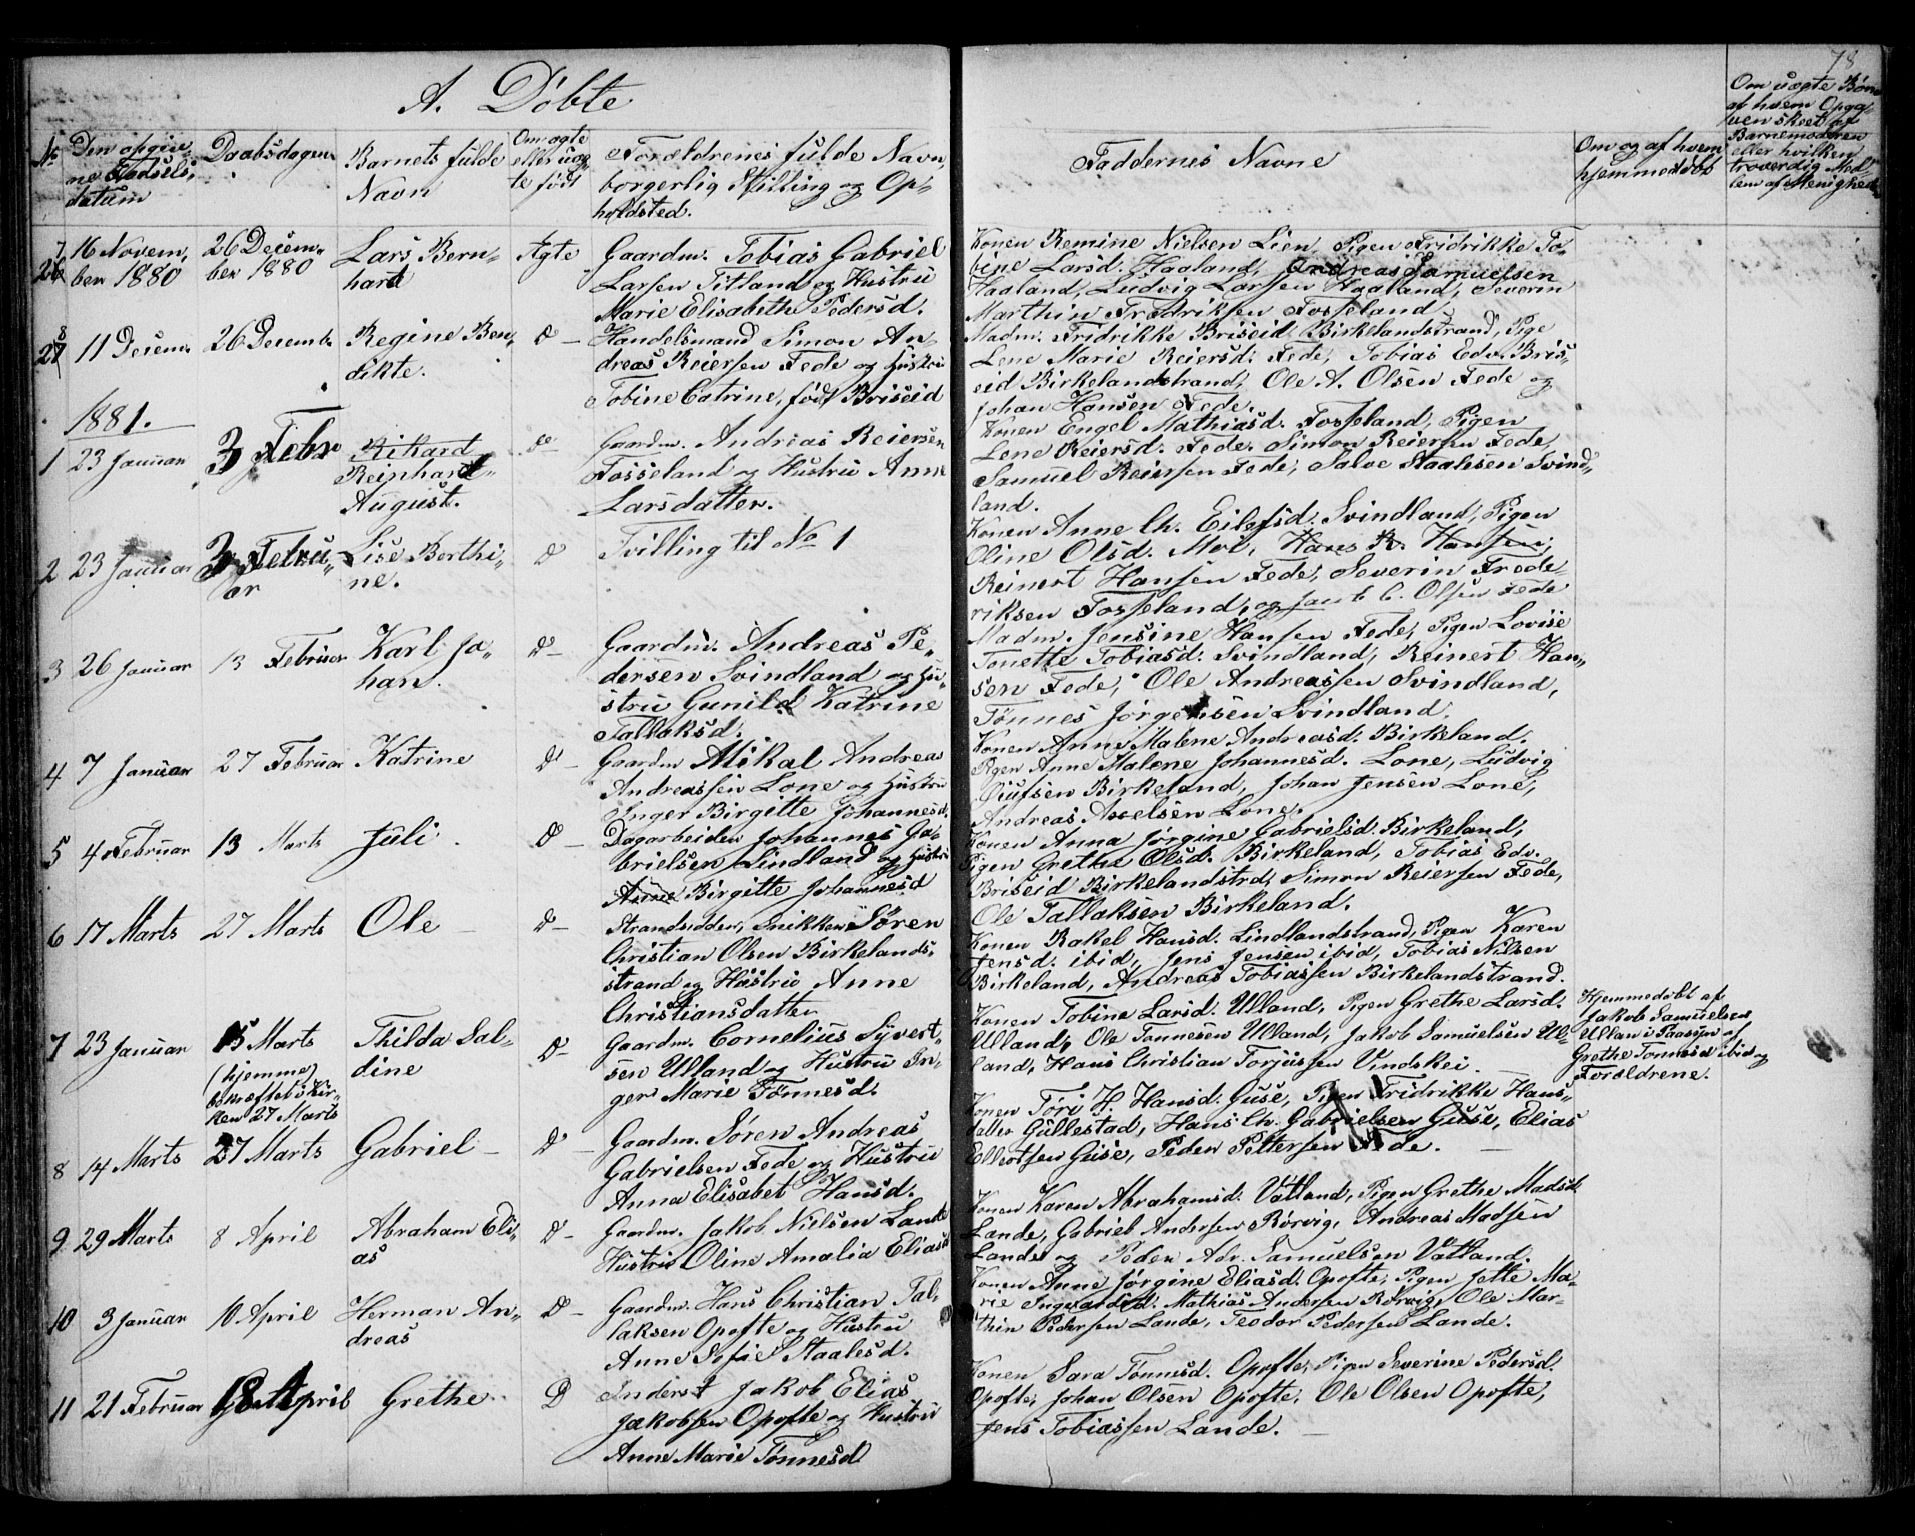 78
A. Döbte
No
Den opgivne Fødsels datum
Daabsdagen
Barnets fulde Navn
Om ægte eller uægte født
Forældrenes fulde Navn, borgerlig Stilling og Opholdsted.
Faddernes Navne
Om og af hvem hjemmedøbt
Om uægte Børn af hvem Opgaven skeet af Barnemoderen eller hvilken troværdig Medlem af Menighed
26
16 Novem,
ber 1880
26 Decem-
ber 1880
Lars Bern-
hard
Ægte
Gaardm. Tobias Gabriel
Larsen Titland og Hustru
Marie Elisabeth Pedersd.
Konen Remine Nielsen Lien, Pigen Fridrikke To-
bine Larsd. Haaland, Andreas Samuelsen
Haaland, Ludvig Larsen Haaland, Severin
Marthin Fredriksen Fosseland
27
11 Decem.
26 Decemb.
Regine Ben,
dikte.
D -
Handelsmand Simon An-
dreas Reiersen Fede og Hustru
Tobine Catrine, født Briseid
Madm. Fridrikke Briseid Birkelandstrand, Pige
Lene Marie Reiersd: Fede, Tobias Edv. Bris-
eid Birkelandstrand, Ole A. Olsen Fede og
Johan Hansen Fede.
1881.
1
23 Januar
3 Febr
Rikard
Reinhard
August.
D-
Gaardm. Andreas Reiersen
Fosseland og Hustru Anne
Larsdatter.
Konen Engel Mathiasd. Fosseland, Pigen
Lene Reiersd. Fede. Simon Reiersen Fede,
Samuel Reiersen Fede, Salve Staalesen Svind-
land.
2
23 Januar
3 Febru-
ar
Lise Berthi-
ne.
D
Tvilling til No 1
Konen Anne Ch. Eilefsd. Svindland, Pigen
Oline Olsd. Moi, Hans R. Hansen,
Reinert Hansen Fede, Severin Frede-
riksen Fosseland, og Jacob C. Olsen Fede
3
26 Januar
13 Februar
Karl Jo-
han.
D-
Gaardm. Andreas Pe-
dersen Svindland og Hu-
stru Gunild Katrine
Tallaksd.
Madm. Jensine Hansen Fede, Pigen Lovise
Tonette Tobiasd. Svindland, Reinert Han-
sen Fede, Ole Andreassen Svindland,
Tønnes Jørgensen Svindland.
4
7 Januar
27 Februar
Katrine
D -
Gaardm Mikal Andreas
Andreassen Lone og Hustru
Inger Birgitte Johannesd.
Konen Anne Malene Andreasd. Birkeland,
Pigen Anne Malene Johannesd. Lone, Ludvig
Olufsen Birkeland, Johan Jensen Lone,
Andreas Axelsen Lone.
5
4 Februar
13 Marts
Juli
D -
Dagarbeider Johannes Ga-
brielsen Lindland og Hustru
Anne Birgitte Johannesd
Konen Anna Jørgine Gabrielsd. Birkeland,
Pigen Grethe Olsd. Birkeland, Tobias Edv.
Briseid Birkelandstrd, Simon Reiersen Fede,
Ole Tallaksen Birkeland.
6
17 Marts
27 Marts
Ole
D-
Strandsidder, Snikker Søren
Christian Olsen Birkelands-
strand og Hustru Anne
Christiansdatter
Konen Rakel Hansd. Lindlandstrand, Pigen Karen
Jensd. ibid, Jens Jensen ibid, Tobias Nilsen
Birkeland, Andreas Tobiassen Birkelandstrand.
7
23 Januar
15 Marts
(hjemme)
bekræftet i Kir-
ken 27 Marts
Thilda Sal-
dine
D-
Gaardm. Cornelius Syvert-
sen Ulland og Hustru In-
ger Marie Tönnesd.
Konen Tobine Larsd. Ulland, Pigen Grethe Larsd.
Ulland, Ole Tønnesen Ulland, Jakob Samuelsen Ul-
land, Hans Christian Torjussen Vindskei.
Hjemmedøbt af
Jakob Samuelsen
Ullan i Paasyn af
Grethe Tønnesd ibid og
Forældrene.
8
14 Marts
27 Marts
Gabriel
D -
Gaardm. Søren Andreas
Gabrielsen Fede og Hustru
Anna Elisabet Hansd.
Konen Tøri H. Hansd. Guse, Pigen Fridrikke Hans-
datter Gullestad, Hans Ch. Gabrielsen Guse, Elias
Guse, Peder Pettersen Fede.
9
29 Marts
8 April
Abraham Eli-
as
D-
Gaardm. Jakob Nielsen Lande
Hustru Oline Amalia Eliasd
Konen Karen Abrahamsd. Vatland, Pigen Grethe Madsd.
Lande, Gabriel Andersen Rørvig, Andreas Madsen
Lande og Peder Adr. Samuelsen Vatland.
10
3 Januar
10 April
Herman An-
dreas
D-
Gaardm. Hans Christian Tal-
laksen Opofte og Hustru
Anne Sofie Staalesd.
Konen Anne Jørgine Eliasd. Opofte, Pigen Jette Ma-
rie Ingvardsd. Mathias Andersen Rørvig, Ole Mar-
thin Pedersen Lande, Teodor Pedersen Lande.
11
21 Februar
18 April
Grethe
D
Inderst Jakob Elias
Jakobsen Opofte og Hustru
Anne Marie Tønnesd
Konen Sara Tønnesd. Opofte, Pigen Severine Pedersd.
Opofte, Johan Olsen Opofte, Ole Olsen Opofte,
Jens Tobiassen Lande.